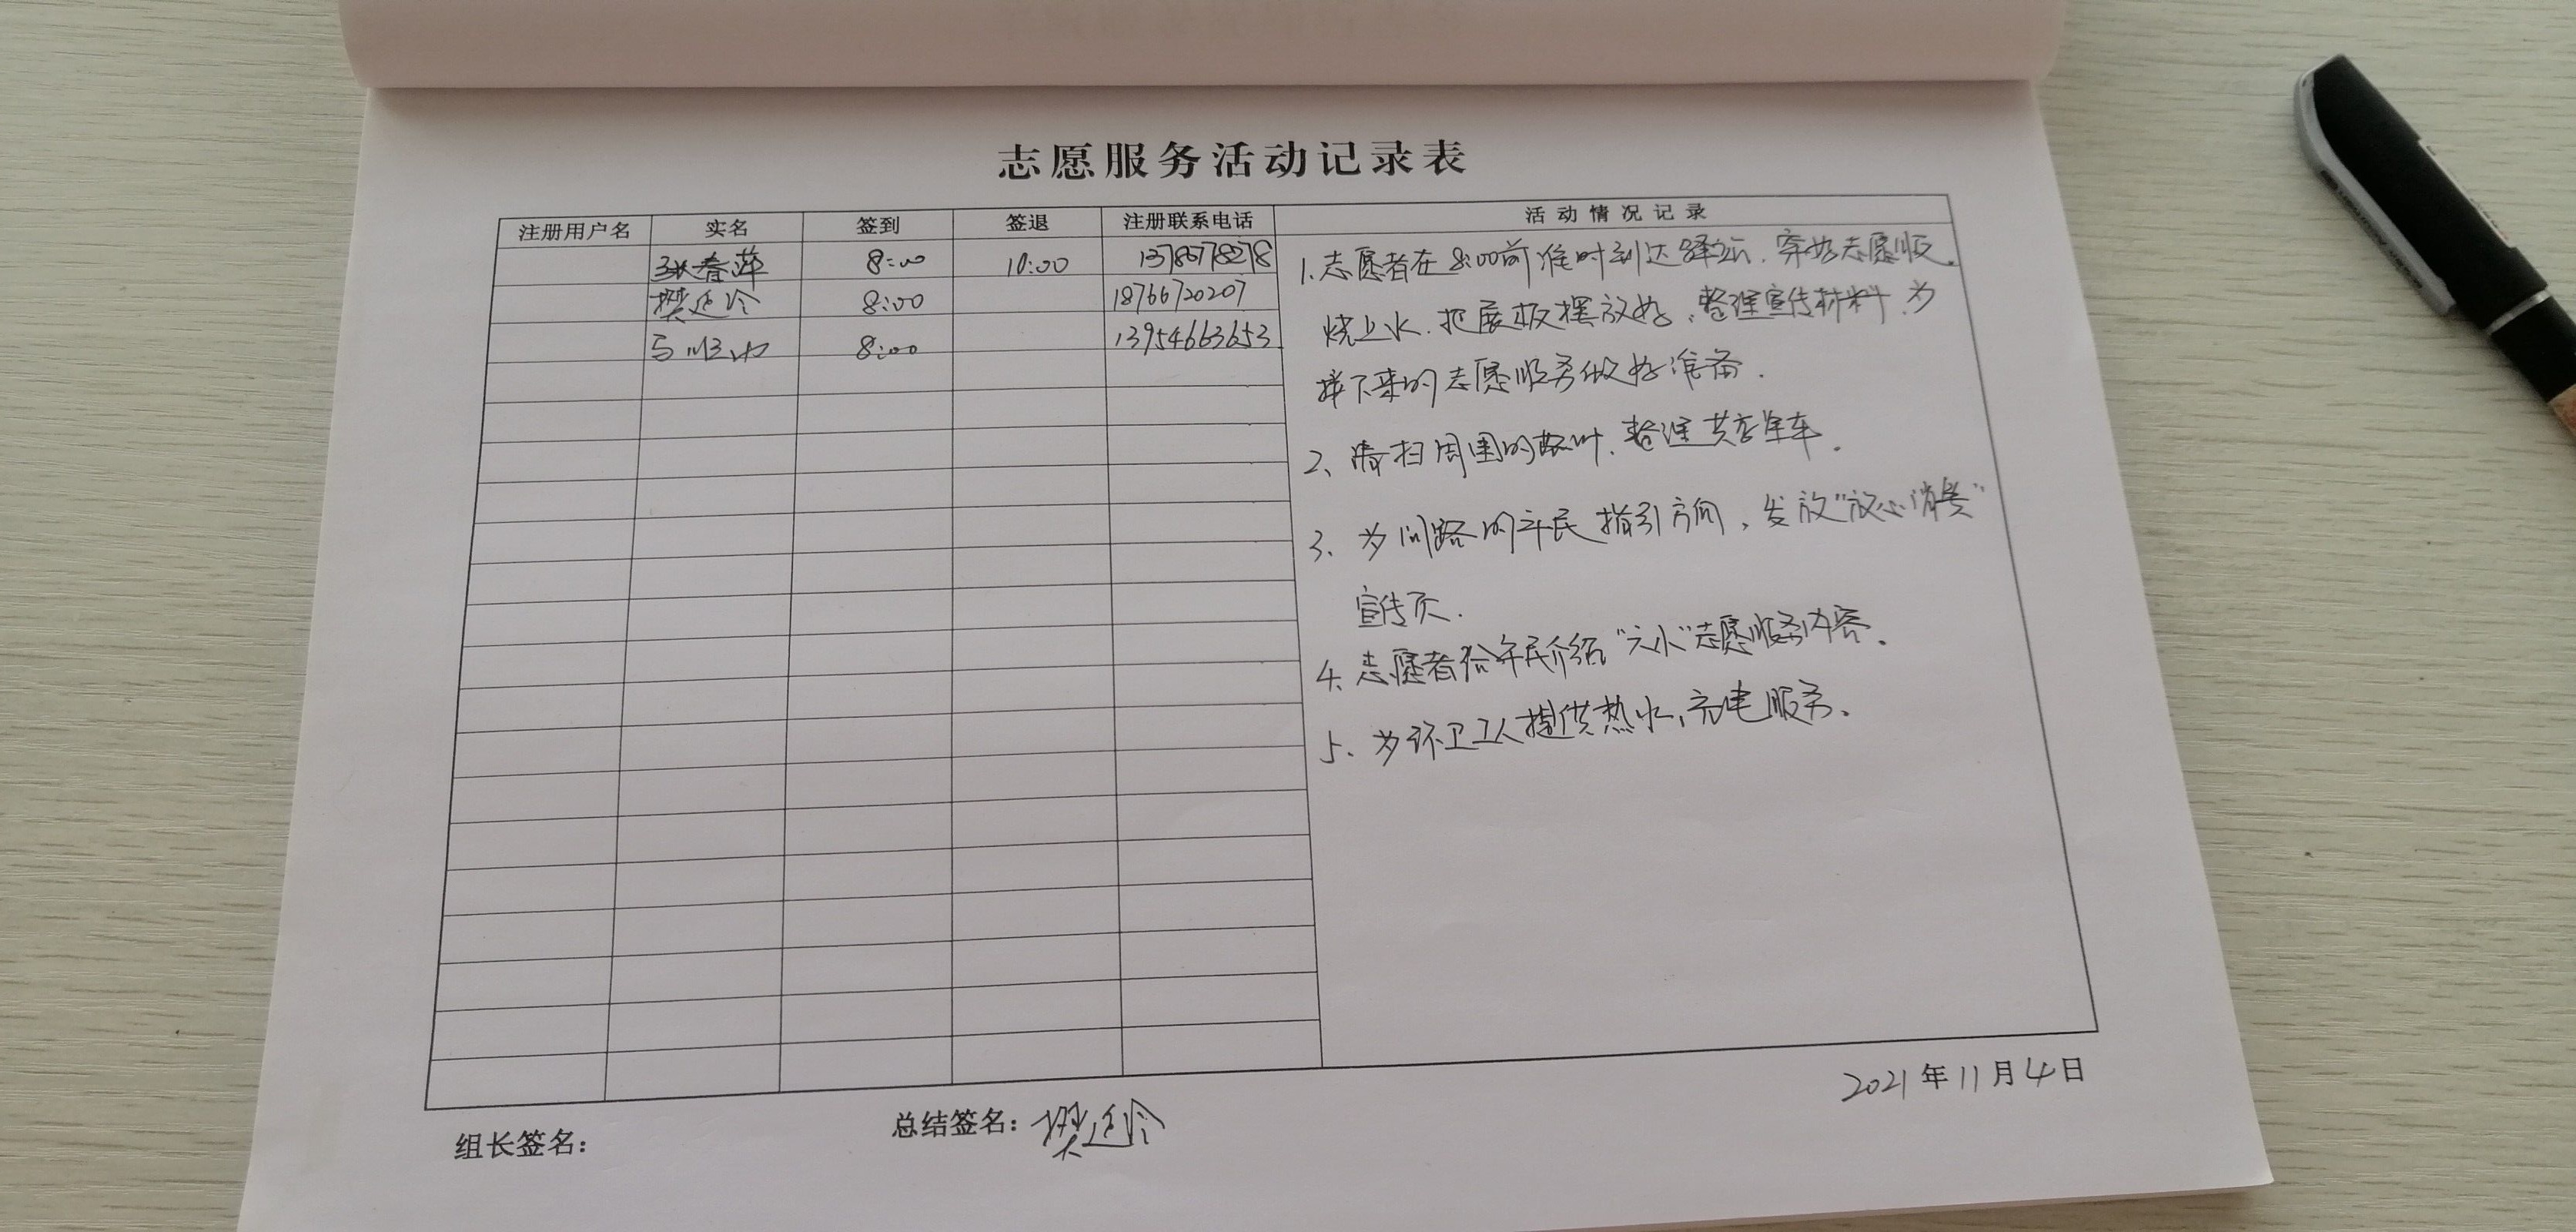 志愿服务活动记录表
注册用户名 实名 签到 签退 注册联系电话 活动情况记录
张春萍 8:00 10:00 13780778278
樊延冷 8:00 18766720207
8:00 13954663653
1.志愿者在8:00前准时到达驿站.穿好志愿服.
烧上水.把展板摆放好、整理宣传材料.为
接下来的志愿服务做好准备.
2、清扫周围的落叶、整理共享单车.
3、为问路的市民指引方向,发放"放心消费"
宣传页.
4.志愿者给市民介绍"六小"志愿服务内容.
5、为环卫工人提供热水,充电服务.
2021年11月4日
组长签名:
总结签名:樊延冷